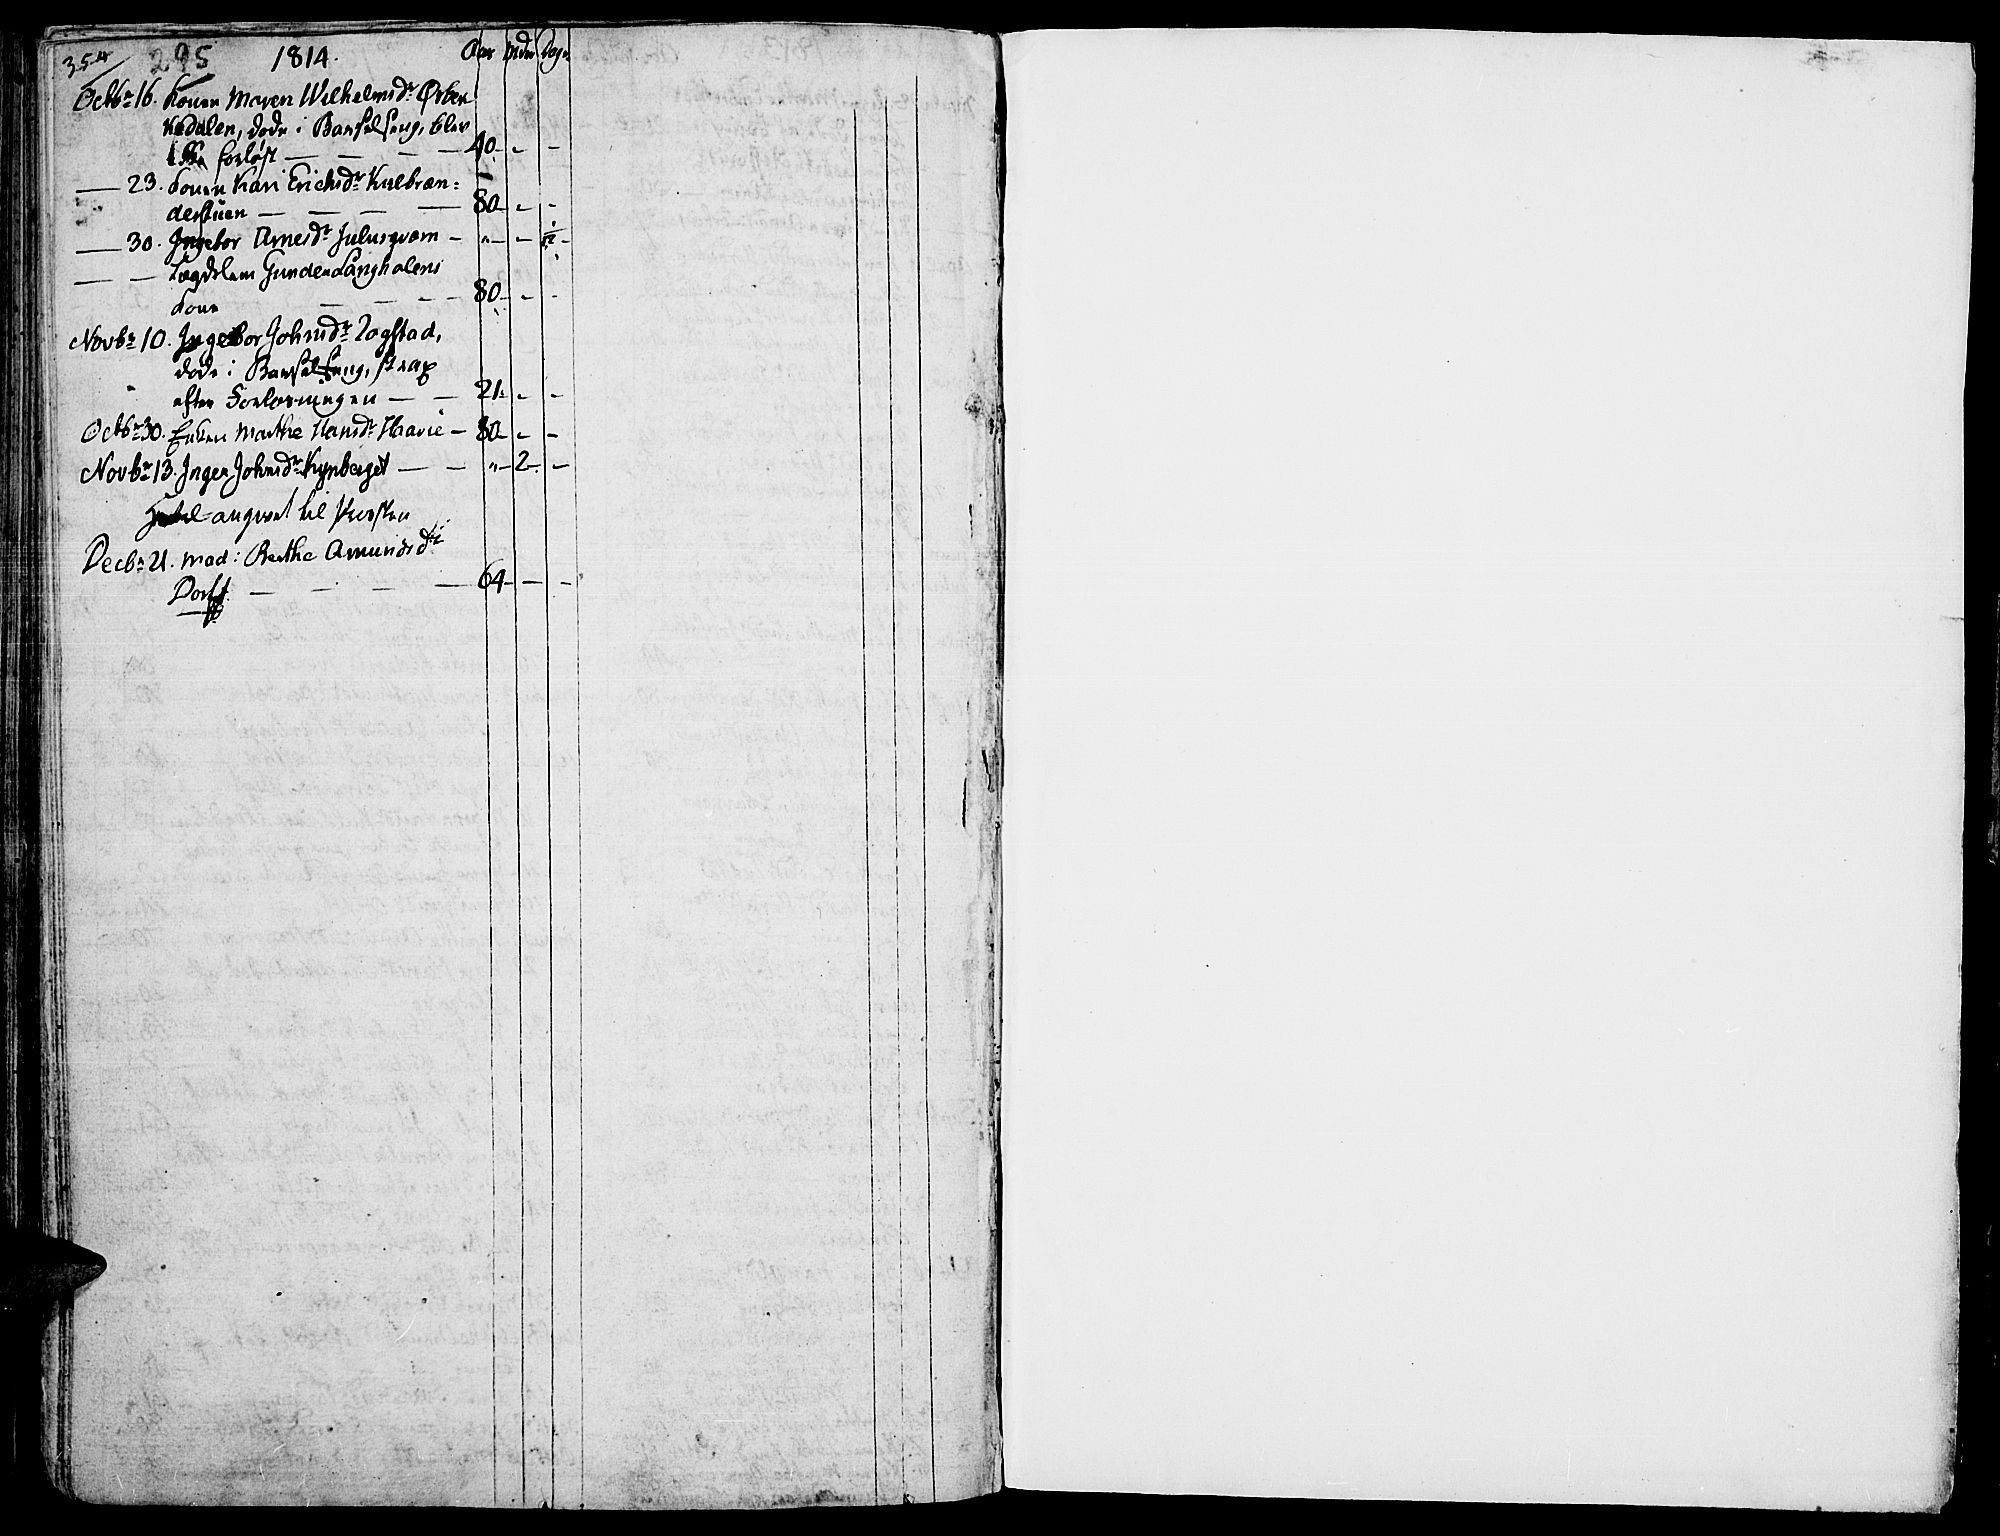 354 295 1814. Aar Mdr Dage
Octbr 16. Konen Maren Wilhelmsdr Ørbek
kedalen, døde i Barselseng, blev
ikke forløst — — — — 40 - -
— 23. Konen Kari Erichsdr Kulbræn=
derstuen — — — — 80 - -
— 30. Ingebor Arnesdr Julusqvæm — " - 12 -
— — Lægdslem Gunder Langholens
Kone — — — — 80 - -
Novbr 10. Ingebor Johnsdr Togstad,
døde i Barselseng, strax
efter Forløsningen — — 21 - -
Octbr 30. Enken Marthe Hansdr Haavie — 80 - -
Novbr 13. Inger Johnsdr Kynberget — — " - 2 - -
angivet til Præsten
Decbr 21. Mad: Berthe Amundsdr
Dorft. — — — — 64 - -